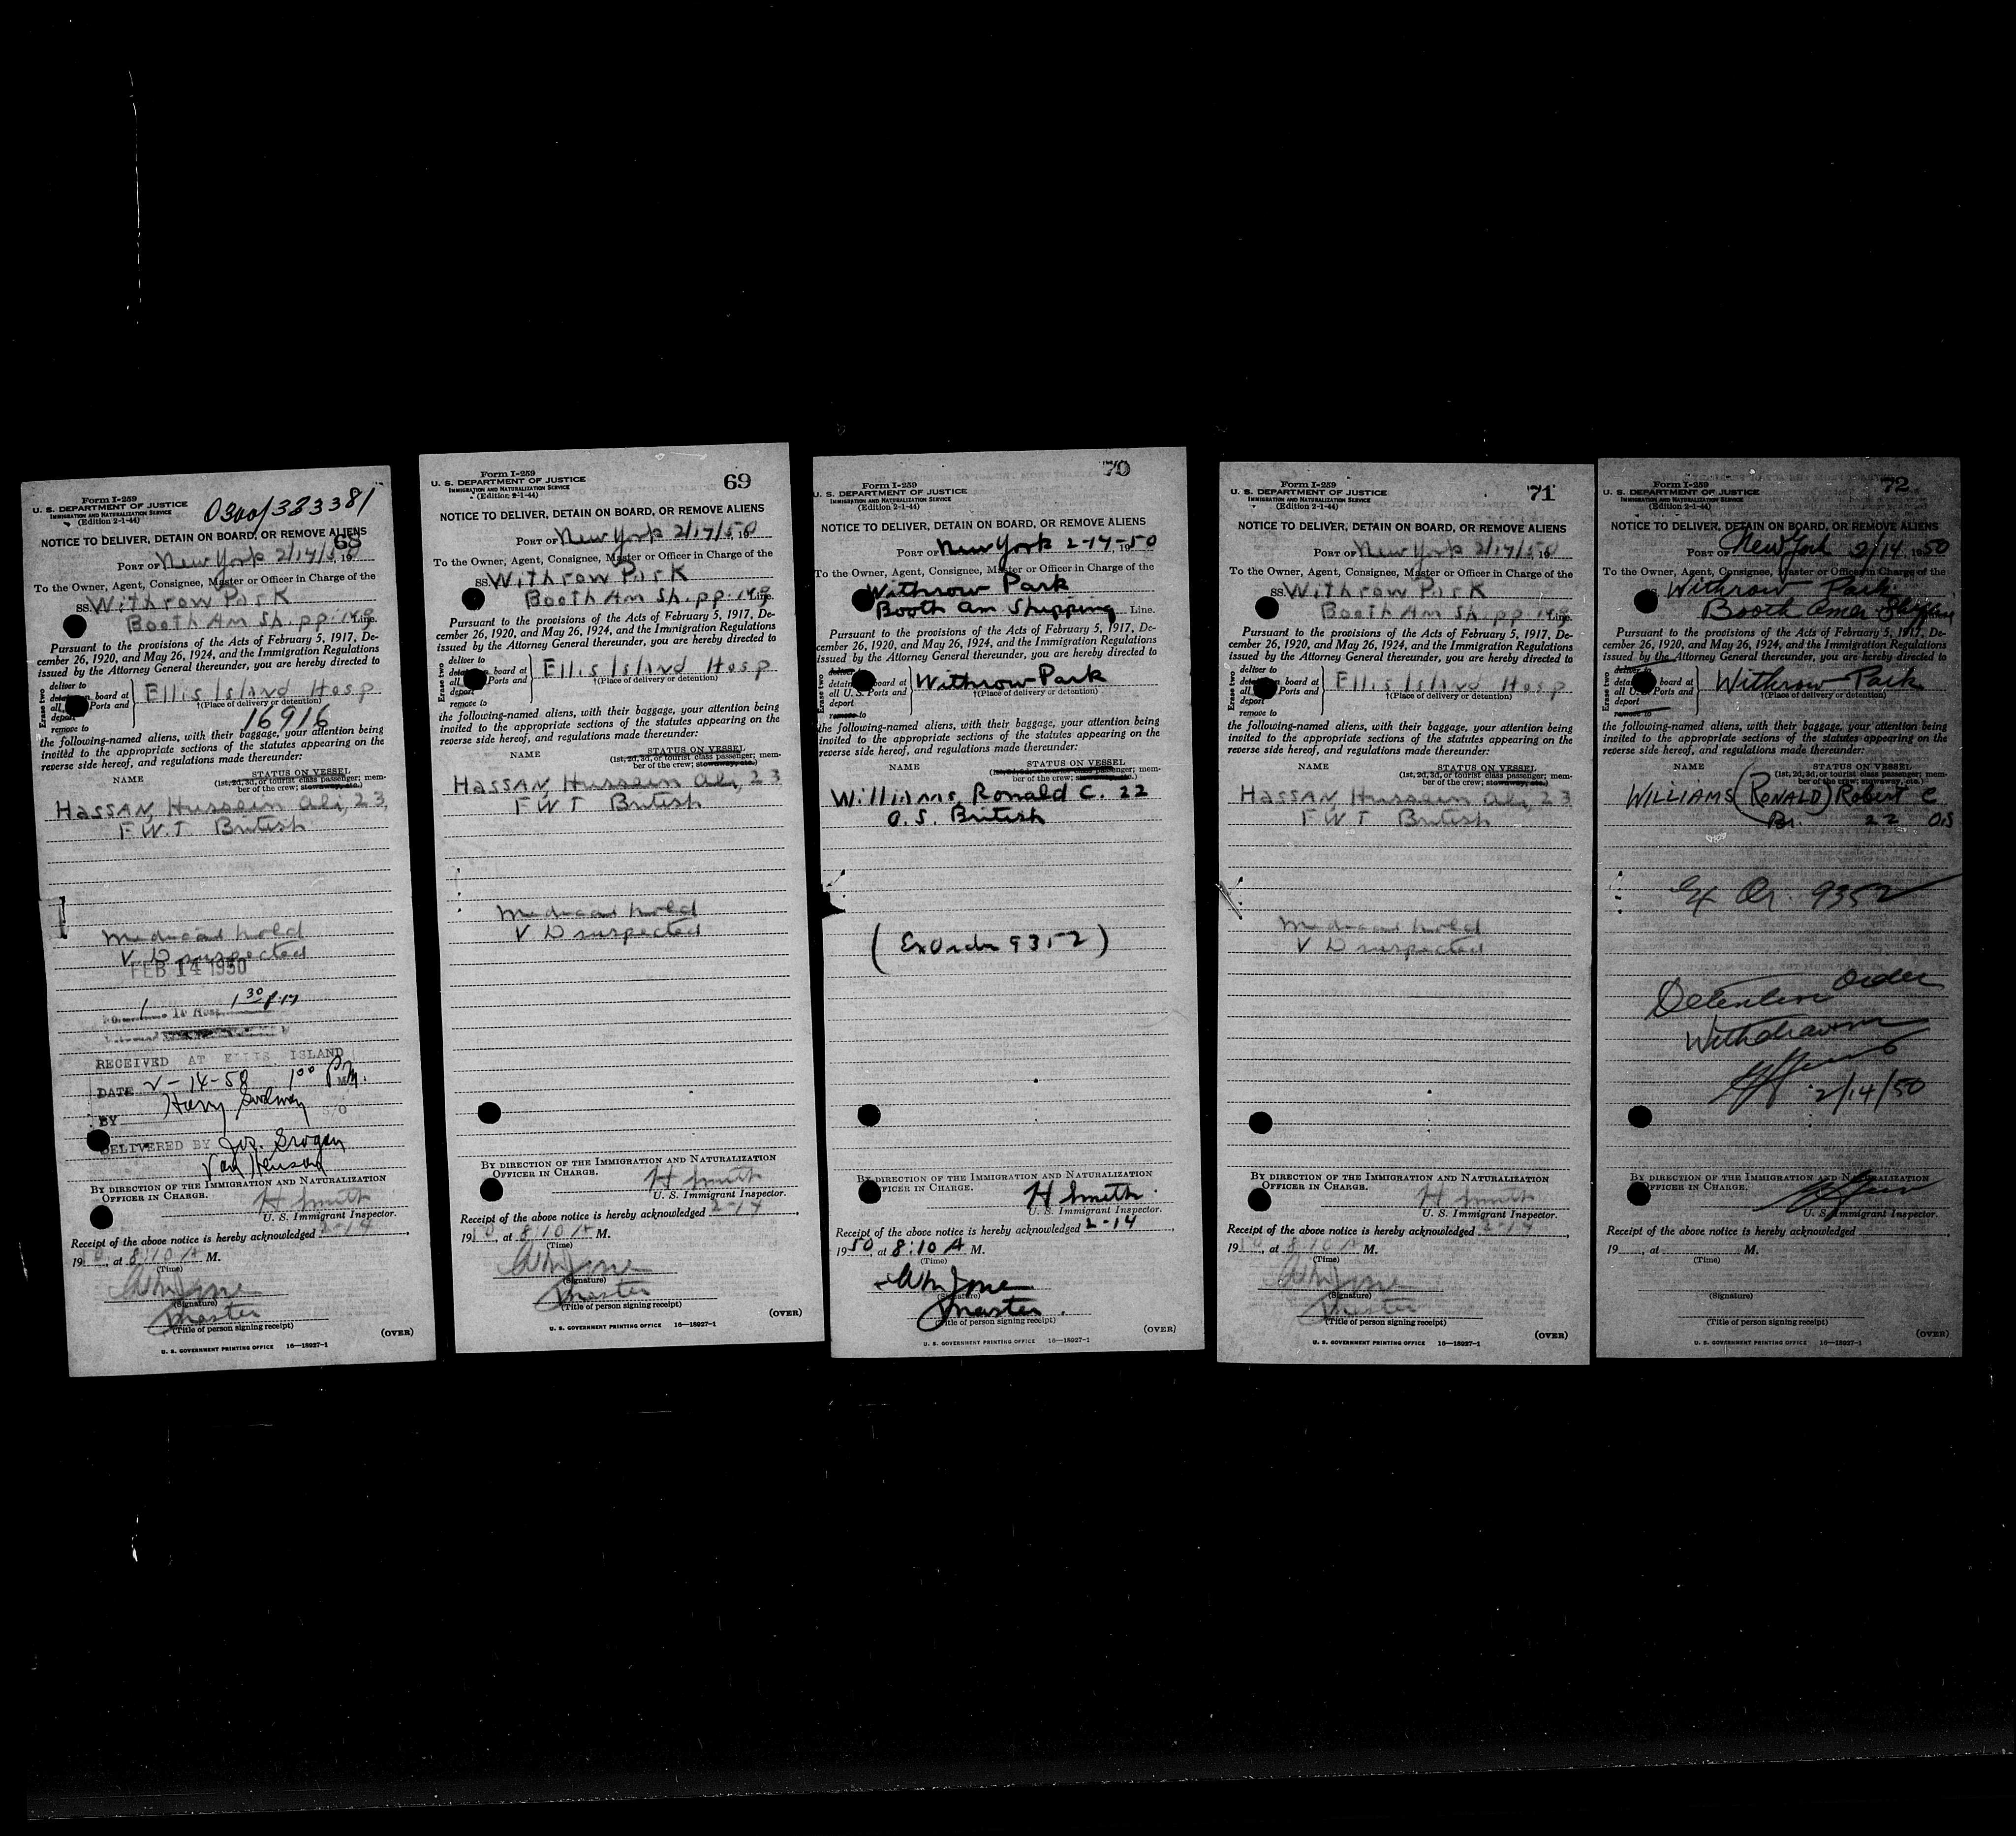 Form I-259
U. S. DEPARTMENT OF JUSTICE
IMMIGRATION AND NATURALIZATION SERVICE
(Edition 2-1-44)
0300/323381
NOTICE TO DELIVER, DETAIN ON BOARD, OR REMOVE ALIENS
68
PORT OF New York 2/14/50, 19
To the Owner, Agent, Consignee, Master or Officer in Charge of the
SS. Withrow Park
Booth Am Shippng Line.
Pursuant to the provisions of the Acts of February 5, 1917, De-
cember 26, 1920, and May 26, 1924, and the Immigration Regulations
issued by the Attorney General thereunder, you are hereby directed to
Erase two
deliver to
board at
all Ports and
deport
remove to
Ellis Island Hosp
†(Place of delivery or detention)
16916
the following-named aliens, with their baggage, your attention being
invited to the appropriate sections of the statutes appearing on the
reverse side hereof, and regulations made thereunder:
NAME
STATUS ON VESSEL
(1st, 2d, 3d, or tourist class passenger; mem-
ber of the crew; stowaway, etc.)
Hassan, Hussein Ali, 23
F.W.T British
Medical hold
V D suspected
FEB 14 1950
1 To Hosp. 1 30 P.M
RECEIVED AT ELLIS ISLAND
DATE 2-14-50 1 00 P.M.
BY Harry
DELIVERED BY Jos. Grogan
Van Henson
BY DIRECTION OF THE IMMIGRATION AND NATURALIZATION
OFFICER IN CHARGE.
H Smith
U. S. Immigrant Inspector.
Receipt of the above notice is hereby acknowledged 2-14,
19 , at 8:10 A M.
(Time)
(Signature)
Master
(Title of person signing receipt)
(OVER)
U. S. GOVERNMENT PRINTING OFFICE 16—18927-1
Form I-259
U. S. DEPARTMENT OF JUSTICE
IMMIGRATION AND NATURALIZATION SERVICE
(Edition 2-1-44)
69
NOTICE TO DELIVER, DETAIN ON BOARD, OR REMOVE ALIENS
PORT OF New York 2/14/50, 19
To the Owner, Agent, Consignee, Master or Officer in Charge of the
SS. Withrow Park
Booth Am Shippng Line.
Pursuant to the provisions of the Acts of February 5, 1917, De-
cember 26, 1920, and May 26, 1924, and the Immigration Regulations
issued by the Attorney General thereunder, you are hereby directed to
Erase two
deliver to
board at
all Ports and
deport
remove to
Ellis Island Hosp
†(Place of delivery or detention)
the following-named aliens, with their baggage, your attention being
invited to the appropriate sections of the statutes appearing on the
reverse side hereof, and regulations made thereunder:
NAME
STATUS ON VESSEL
(1st, 2d, 3d, or tourist class passenger; mem-
ber of the crew; stowaway, etc.)
Hassan, Hussein Ali, 23
F.W.T British
Medical hold
V D suspected
BY DIRECTION OF THE IMMIGRATION AND NATURALIZATION
OFFICER IN CHARGE.
H Smith
U. S. Immigrant Inspector.
Receipt of the above notice is hereby acknowledged 2-14,
19 , at 8:10 A M.
(Time)
(Signature)
Master
(Title of person signing receipt)
(OVER)
U. S. GOVERNMENT PRINTING OFFICE 16—18927-1
70
Form I-259
U. S. DEPARTMENT OF JUSTICE
IMMIGRATION AND NATURALIZATION SERVICE
(Edition 2-1-44)
NOTICE TO DELIVER, DETAIN ON BOARD, OR REMOVE ALIENS
PORT OF New York 2-14-1950
To the Owner, Agent, Consignee, Master or Officer in Charge of the
Withrow Park
Booth Am Shipping Line.
Pursuant to the provisions of the Acts of February 5, 1917, De-
cember 26, 1920, and May 26, 1924, and the Immigration Regulations
issued by the Attorney General thereunder, you are hereby directed to
Erase two
deliver to
detain board at
all U.S. Ports and
deport
remove to
Withrow Park
†(Place of delivery or detention)
the following-named aliens, with their baggage, your attention being
invited to the appropriate sections of the statutes appearing on the
reverse side hereof, and regulations made thereunder:
NAME
STATUS ON VESSEL
(1st, 2d, 3d, or tourist class passenger; mem-
ber of the crew; stowaway, etc.)
Williams, Ronald C. 22
O.S. British
(Ex Order 9352)
BY DIRECTION OF THE IMMIGRATION AND NATURALIZATION
OFFICER IN CHARGE.
H Smith.
U. S. Immigrant Inspector.
Receipt of the above notice is hereby acknowledged 2-14
1950, at 8:10 A M.
(Time)
(Signature)
Master.
(Title of person signing receipt)
(OVER)
U. S. GOVERNMENT PRINTING OFFICE 16—18927-1
Form I-259
U. S. DEPARTMENT OF JUSTICE
IMMIGRATION AND NATURALIZATION SERVICE
(Edition 2-1-44)
71
NOTICE TO DELIVER, DETAIN ON BOARD, OR REMOVE ALIENS
PORT OF New York 2/14/50, 19
To the Owner, Agent, Consignee, Master or Officer in Charge of the
SS. Withrow Park
Booth Am Shippng Line.
Pursuant to the provisions of the Acts of February 5, 1917, De-
cember 26, 1920, and May 26, 1924, and the Immigration Regulations
issued by the Attorney General thereunder, you are hereby directed to
Erase two
deliver to
board at
all Ports and
deport
remove to
Ellis Island Hosp
†(Place of delivery or detention)
the following-named aliens, with their baggage, your attention being
invited to the appropriate sections of the statutes appearing on the
reverse side hereof, and regulations made thereunder:
NAME
STATUS ON VESSEL
(1st, 2d, 3d, or tourist class passenger; mem-
ber of the crew; stowaway, etc.)
Hassan, Hussein Ali, 23
F.W.T British
Medical hold
V D suspected
BY DIRECTION OF THE IMMIGRATION AND NATURALIZATION
OFFICER IN CHARGE.
H Smith
U. S. Immigrant Inspector.
Receipt of the above notice is hereby acknowledged 2-14,
19 , at 8:10 A M.
(Time)
(Signature)
Master
(Title of person signing receipt)
(OVER)
U. S. GOVERNMENT PRINTING OFFICE 16—18927-1
Form I-259
U. S. DEPARTMENT OF JUSTICE
IMMIGRATION AND NATURALIZATION SERVICE
(Edition 2-1-44)
72
NOTICE TO DELIVER, DETAIN ON BOARD, OR REMOVE ALIENS
PORT OF New York 2/14 1950
To the Owner, Agent, Consignee, Master or Officer in Charge of the
Withrow Park
Booth Amer Shipping
Pursuant to the provisions of the Acts of February 5, 1917, De-
cember 26, 1920, and May 26, 1924, and the Immigration Regulations
issued by the Attorney General thereunder, you are hereby directed to
Erase two
deliver to
detain board at
all U. Ports and
deport
remove to
Withrow Park
†(Place of delivery or detention)
the following-named aliens, with their baggage, your attention being
invited to the appropriate sections of the statutes appearing on the
reverse side hereof, and regulations made thereunder:
NAME
STATUS ON VESSEL
(1st, 2d, 3d, or tourist class passenger; mem-
ber of the crew; stowaway, etc.)
WILLIAMS (RONALD) Robert C
Br. 22 O.S
Ex Or. 9352
Detention Order
Withdrawn
2/14/50
BY DIRECTION OF THE IMMIGRATION AND NATURALIZATION
OFFICER IN CHARGE.
U. S. Immigrant Inspector.
Receipt of the above notice is hereby acknowledged
19 , at M.
(Time)
(Signature)
(Title of person signing receipt)
(OVER)
U. S. GOVERNMENT PRINTING OFFICE 16—18927-1